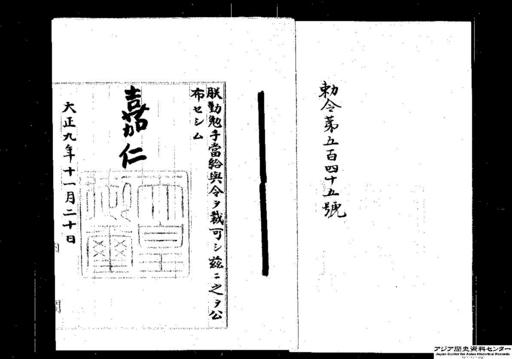 勅令第五百四十五號
朕勤勉手當給與令ヲ裁可シ茲ニ之ヲ公
布セシム
嘉仁
大正九年十一月二十日
アジア歴史資料センター
Japan Center for Asian Historical Records